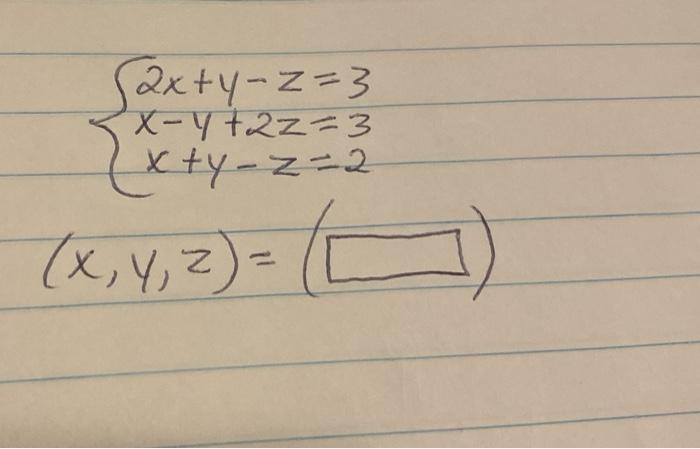 2x+y-z=3
x-y+2z=3
x+y-z=2
(x,y,z)=( )